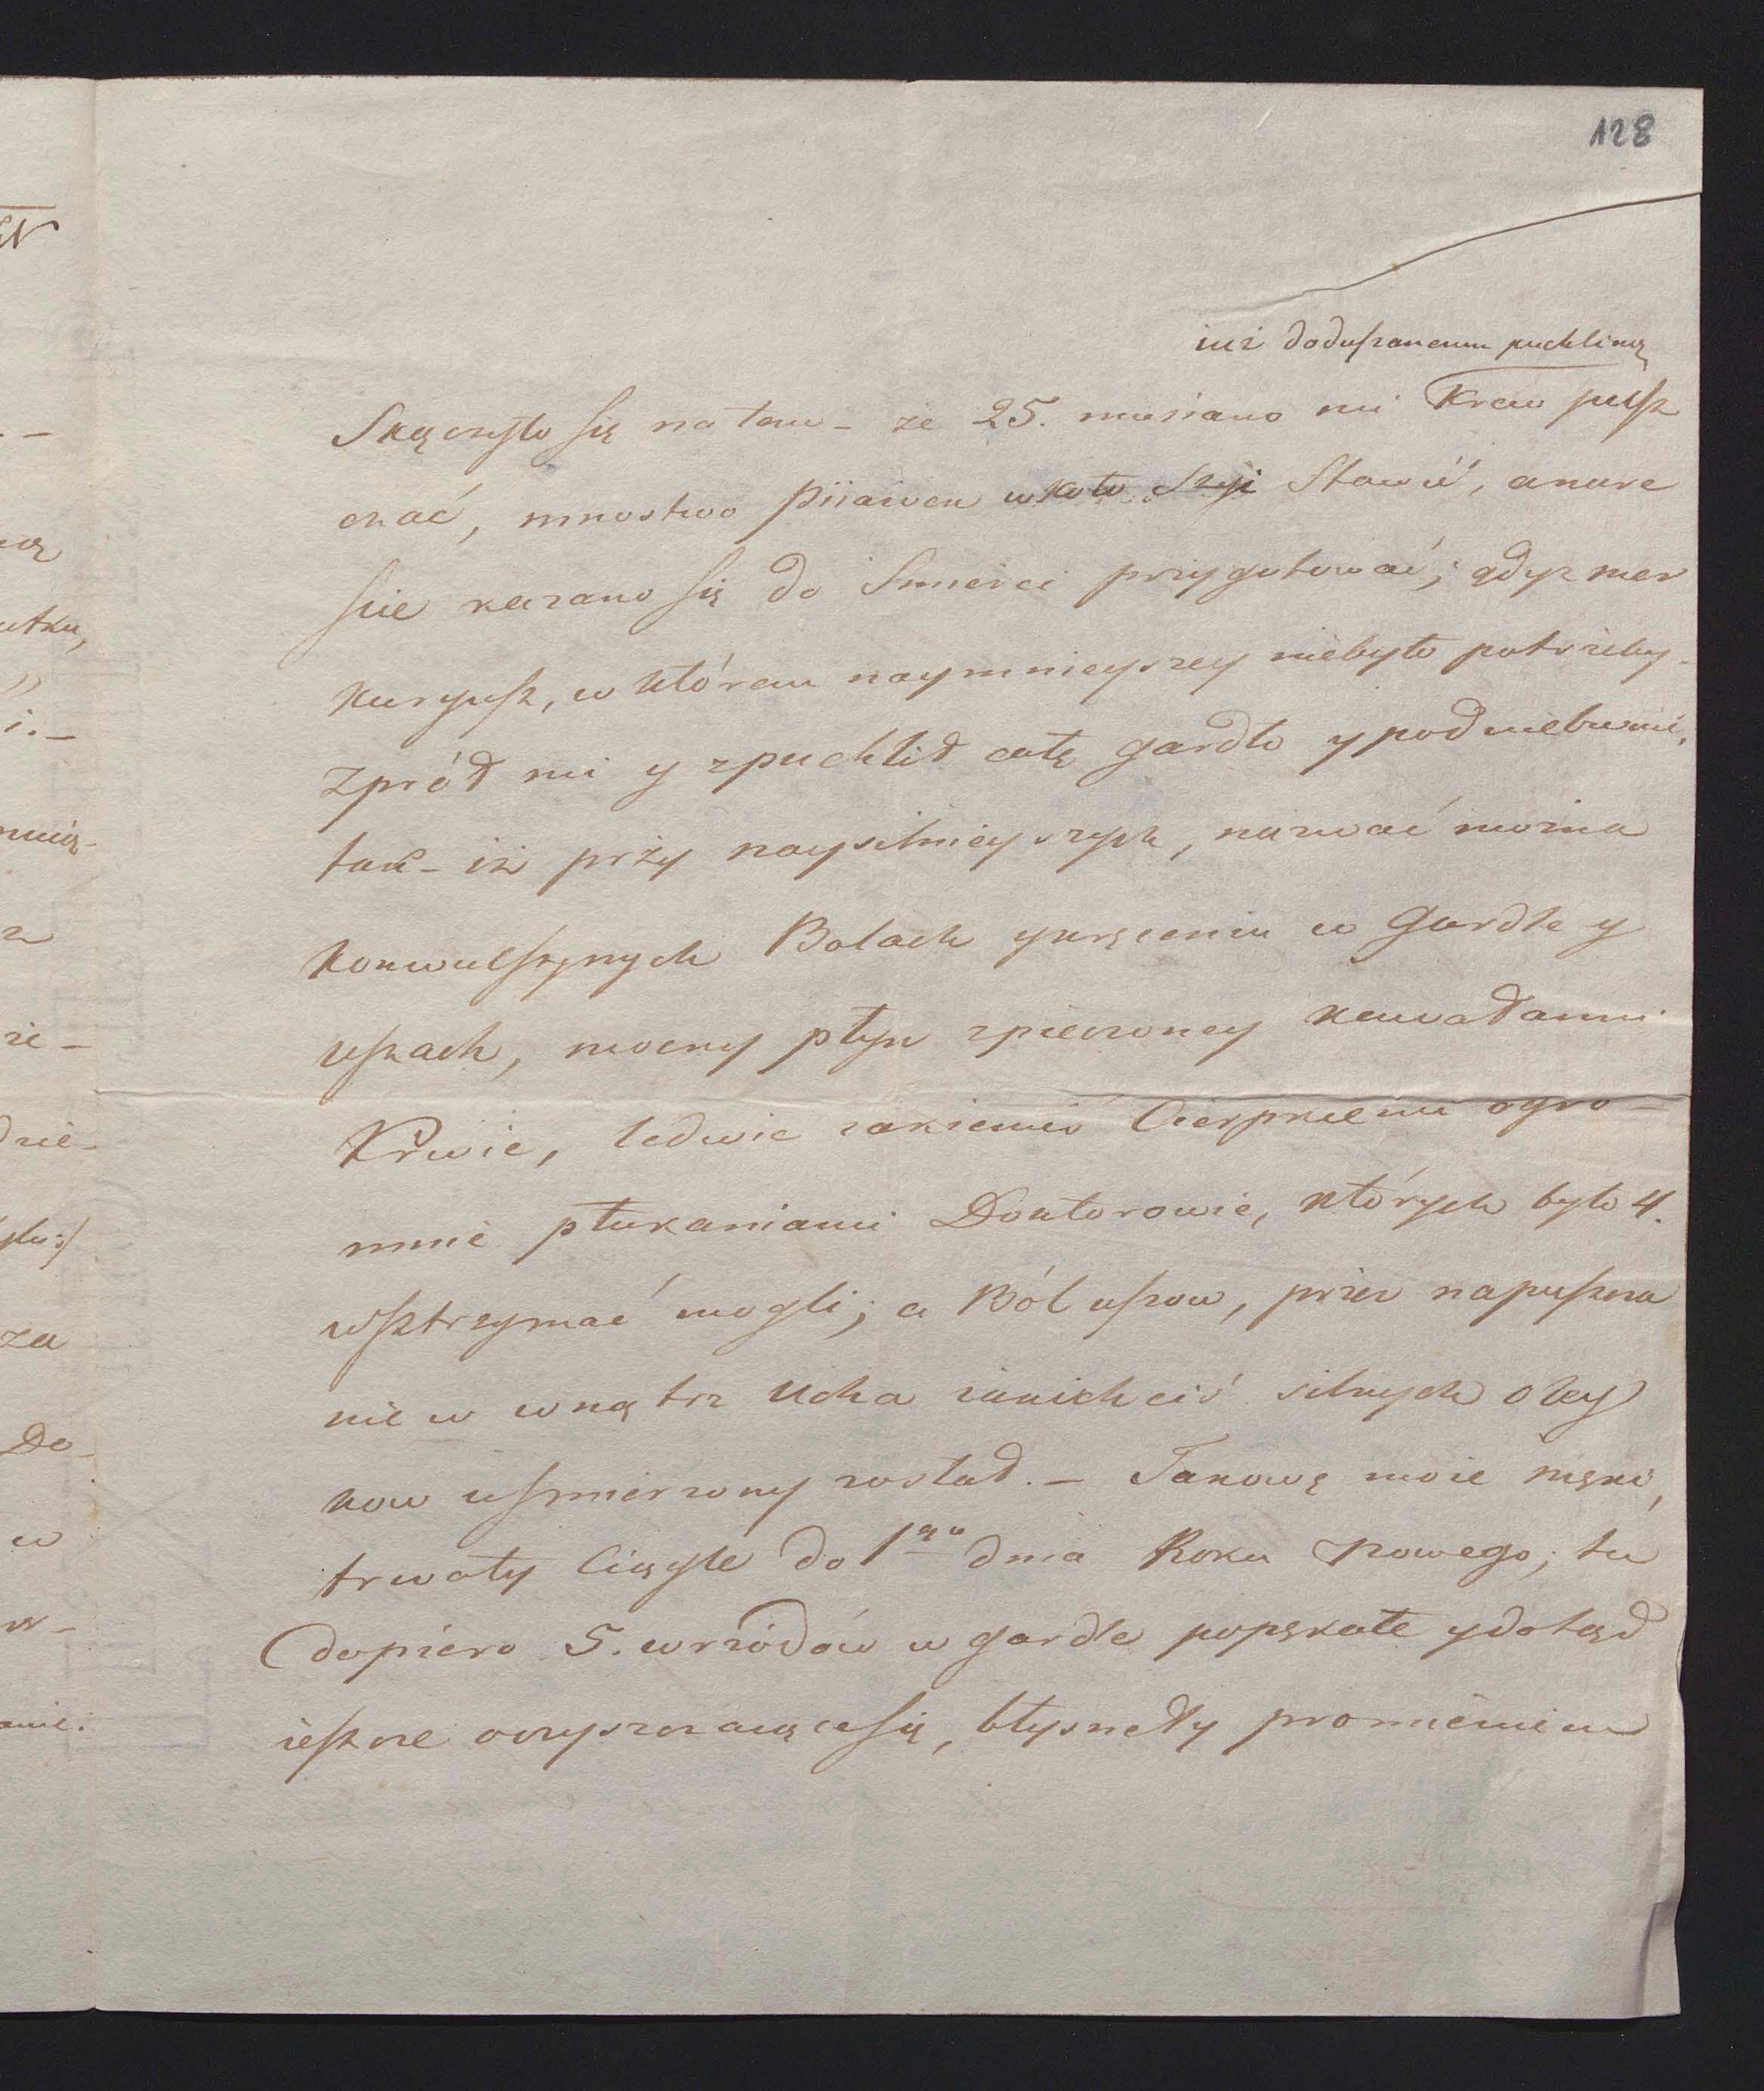 128
iuż doduszonemu puchliną
Skączyło się na tem – że 25. musiano mi Krew pusz
czać, mnostwo Piiawek wkoło Szyi Stawić, anare
ście kazano się do Smierci przygotować; gdyż mer
kuryusz, w którem naymnieyszey niebyło potrzeby –
zpród mi y zpuchlił całę gardło y podniebienie,
tak – iż przy naysilnieyszych, nazwać można
konwulsyinych Bolach y kręceniu w Gardle y
uszach, mocny płyn zpieczoney kawałami
Krwie, ledwie iakiemiś Cierpkiemi ogro –
mnie płukaniami Doktorowie, których było 4.
wsztrzymać mogli; a Ból uszow, przez napuszcza
nie w wnątrz Ucha iakichciś silnych oley
kow uśmierzony został. – Takowę moie męki,
trwały Ciągle do 1go dnia Roku Nowego; tu
dopiero 5. wrzódów w gardle popękałe y dotąd
ieszcze oczyszczaiącesię, błysnęły promieniem